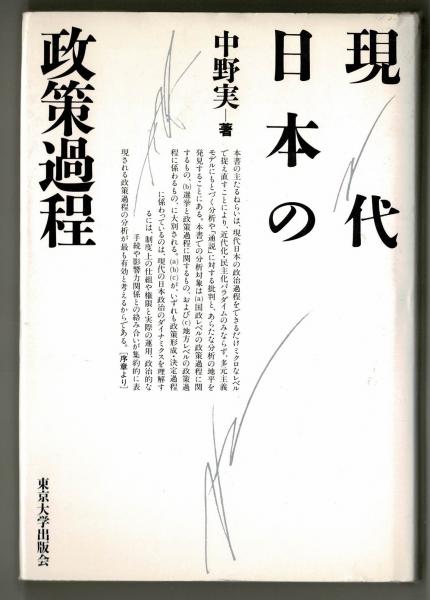 現代
日本の
政策過程
中野実―著
本書の主たるねらいは、現代日本の政治過程をできるだけミクロなレベル
で捉え直すことにより、近代化・民主化パラダイムのみならず、多元主義
モデルにもとづく分析や「通説」に対する批判と、あらたな分析の地平を
発見することにある。本書での分析対象は(a)国政レベルの政策過程に関
するもの、(b)選挙と政策過程に関するもの、および(c)地方レベルの政策過
程に係わるもの、に大別される。(a)(b)(c)が、いずれも政策形成・決定過程
に係わっているのは、現代の日本政治のダイナミクスを理解す
るには、制度上の仕組や権限と実際の運用、政治的な
手続や影響力関係との絡み合いが集約的に表
現される政策過程の分析が最も有効と考えるからである。(序章より)
東京大学出版会